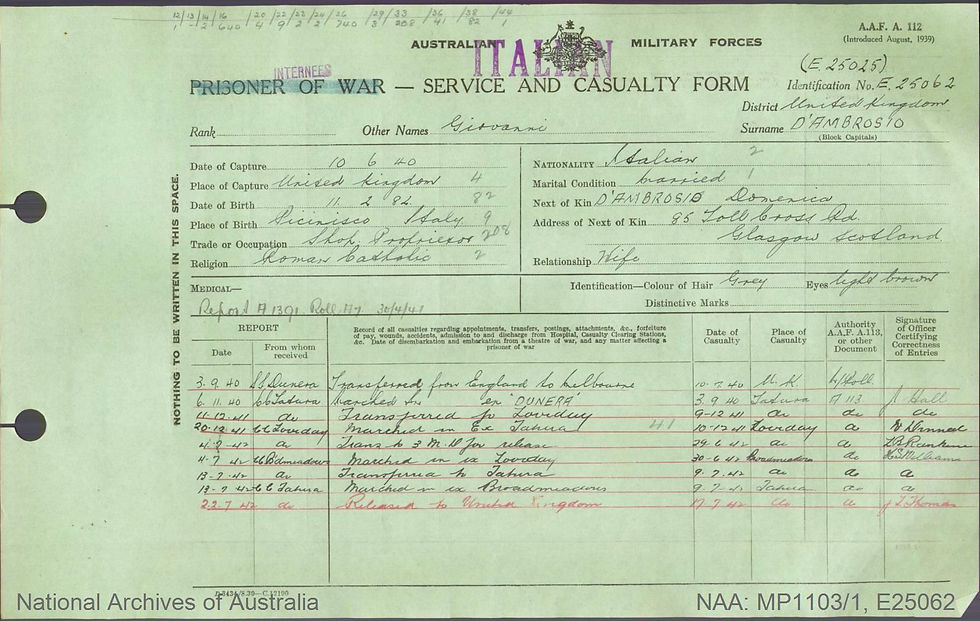 12/13/14/16 /20/22/23/24/26 /29/33 /36 /38 /44
AUSTRALIAN MILITARY FORCES
ITALIAN
A.A.F. A. 112
(Introduced August, 1939)
INTERNEES
PRISONER OF WAR — SERVICE AND CASUALTY FORM
(E 25025)
Identification No. E. 25062
District United Kingdom
Rank Other Names Giovanni
Surname D'AMBROSIO
(Block Capitals)
Date of Capture 10 6 40
Place of Capture United Kingdom 4
Date of Birth 11. 2 82 82
Place of Birth Picinisco Italy 9
Trade or Occupation Shop Proprietor 208
Religion Roman Catholic 2
NATIONALITY Italian 2
Marital Condition Married 1
Next of Kin D'AMBROSIO Domenica
Address of Next of Kin 85 Toll Cross Rd.
Glasgow Scotland
Relationship Wife
MEDICAL—
Report A 1391 Roll A7 30/4/41
Identification—Colour of Hair Grey Eyes light brown
Distinctive Marks
NOTHING TO BE WRITTEN IN THIS SPACE.
REPORT
Date
From whom received
Record of all casualties regarding appointments, transfers, postings, attachments, &c., forfeiture
of pay, wounds, accidents, admission to and discharge from Hospital, Casualty Clearing Stations,
&c. Date of disembarkation and embarkation from a theatre of war, and any matter affecting a
prisoner of war
Date of Casualty
Place of Casualty
Authority A.A.F. A.113, or other Document
Signature of Officer Certifying Correctness of Entries
3. 9. 40 SS Dunera Transferred from England to Melbourne 10. 7. 40 U.K. N/Roll
6. 11. 40 CC Tatura Marched in ex "DUNERA" 3. 9 40 Tatura A 113 Hall
11-12-41 do Transferred to Loveday 9-12 41 do do do
20-12-41 CC Loveday Marched in Ex Tatura 41 10-12 41 Loveday do
4-7-42 do Trans to 3 M.D for release 29-6 42 do do
4-7 42 Marched in ex Loveday 30-6 42 Broadmeadows do Williams
13-7-42 do Transferred to Tatura 9. 7. 42 do do do
13-7-42 CC Tatura Marched in ex Broadmeadows 9. 7 42 Tatura do do
23.7 42 do Released to United Kingdom 17 7 42 do do Thomas
National Archives of Australia
NAA: MP1103/1, E25062